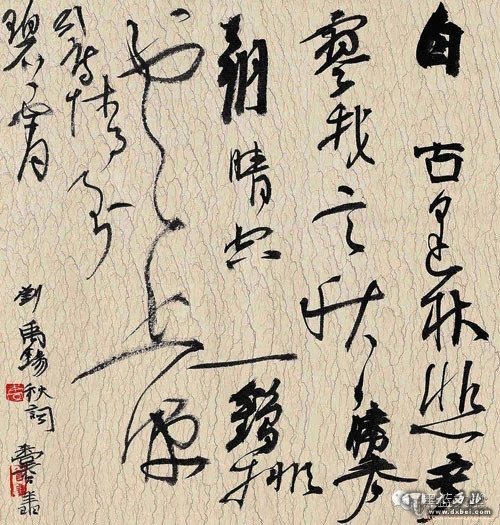 自古逢秋悲寂
寥我言秋日勝春
朝晴空一鶴排
云上便
引詩情到
碧霄
劉禹錫秋詞
www.dxbei.com